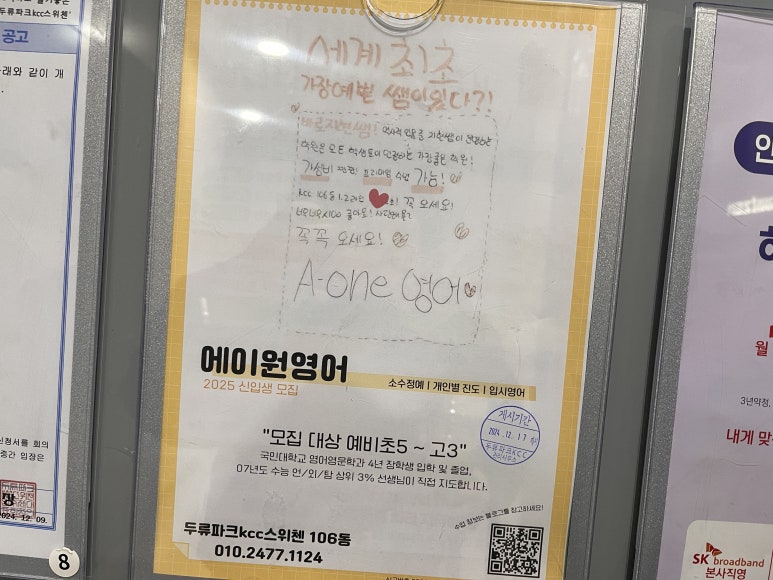 두류파크kcc스위첸'
공고
래와 같이 개
신청서를 회의
중간 입장은
장
2024. 12. 09.
8
세계 최초
가장예쁜 쌤이있다?!
가성비 프리미엄 수업 가능!
꼭 오세요!
꼭꼭 오세요!
A-one 영어
에이원영어
2025 신입생 모집
소수정예 | 개인별 진도 | 입시영어
게시기간
2024. 12. 17
두류파크KCC
"모집 대상 예비초5 ~ 고3"
국민대학교 영어영문학과 4년 장학생 입학 및 졸업,
07년도 수능 언/외/탐 상위 3% 선생님이 직접 지도합니다.
수업 정보는 블로그를 참고하세요!
두류파크kcc스위첸 106동
010.2477.1124
월
3년약정,
내게 맞
SK broadband
본사직영